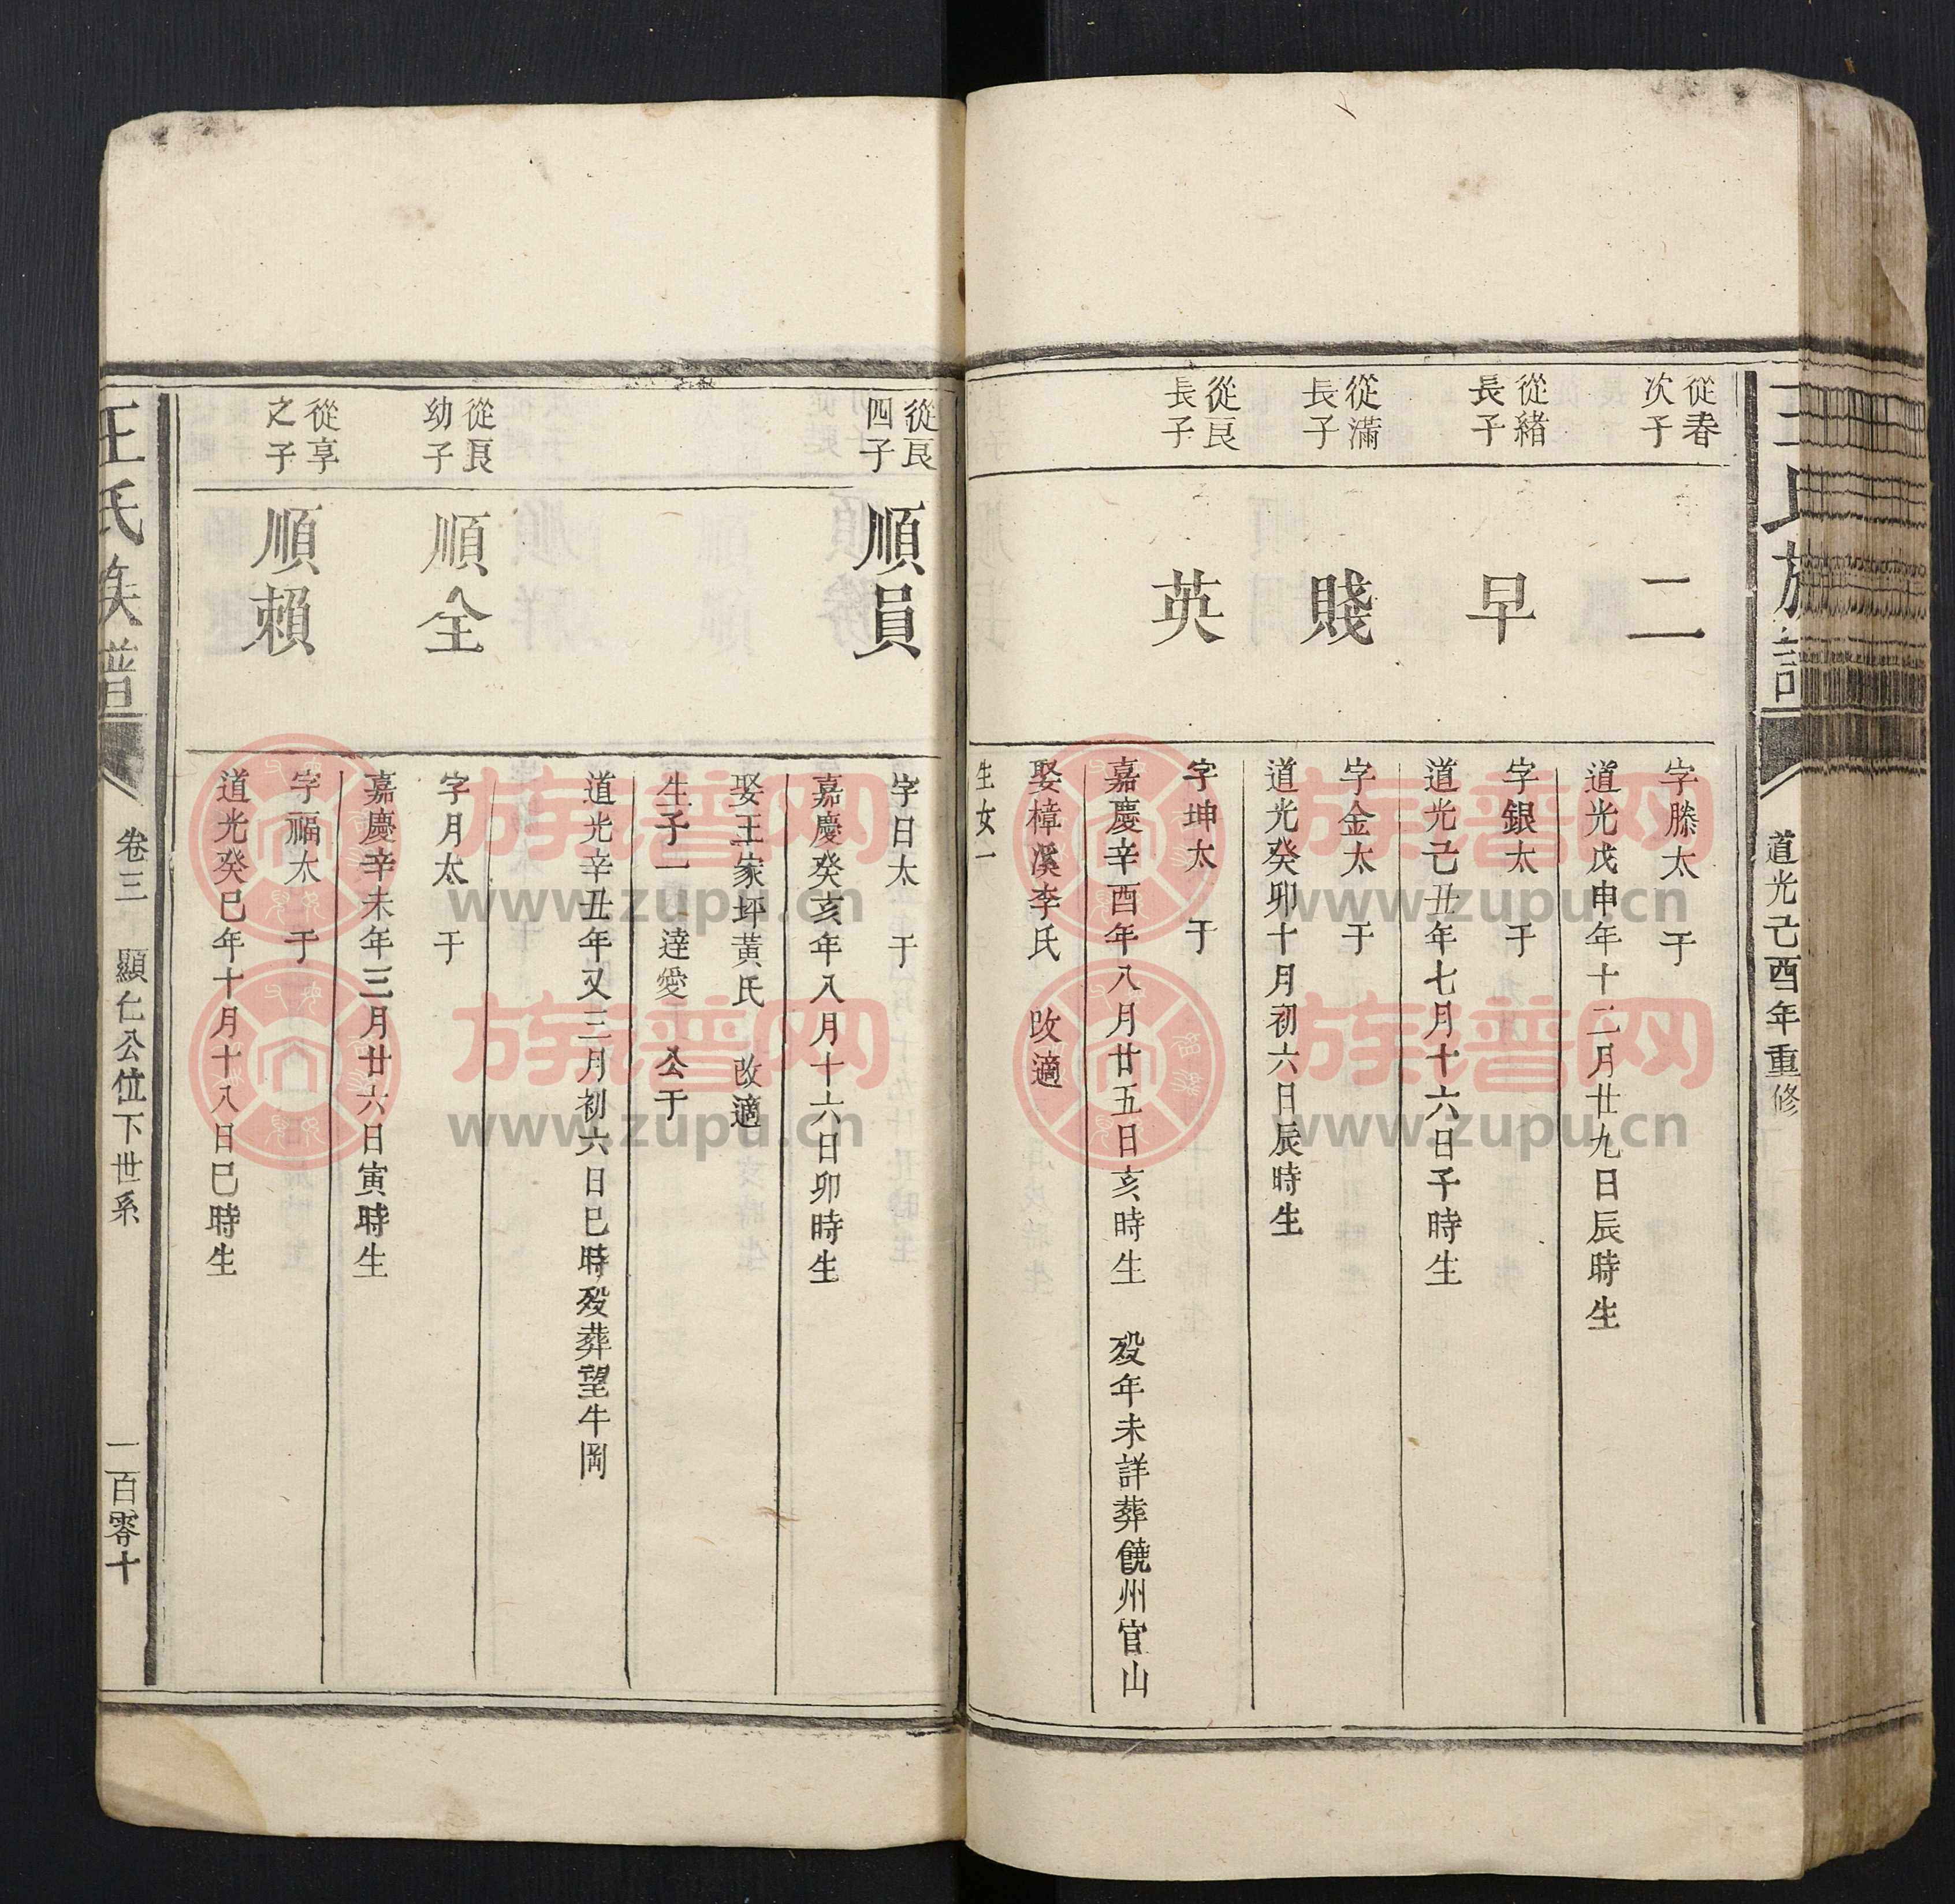 道光己酉年重修
從春
次子
二
字滕太 于
道光戊申年十二月廿九日辰時生
從緒
長子
早
字銀太 于
道光己丑年七月十六日子時生
從滿
長子
賤
字金太 于
道光癸卯十月初六日辰時生
從良
長子
英
字坤太 于
嘉慶辛酉年八月廿五日亥時生 歿年未詳葬饒州官山
娶樟溪李氏 改適
生女一
從良
四子
順員
字日太 于
嘉慶癸亥年八月十六日卯時生
娶王家坪黃氏 改適
生子一 達愛 公于
道光辛丑年又三月初六日巳時歿葬望牛岡
從良
幼子
順全
字月太 于
嘉慶辛未年三月廿六日寅時生
從享
之子
順賴
字福太 于
道光癸巳年十月十八日巳時生
王氏族譜 卷三 顯仁公位下世系 一百零十
族譜网
www.zupu.cn
族譜网
www.zupu.cn
族譜网
www.zupu.cn
族譜网
www.zupu.cn